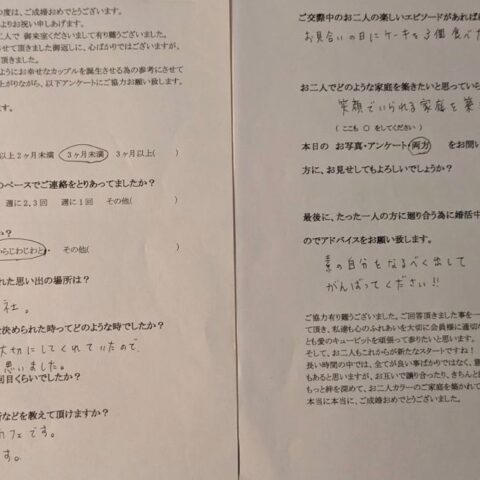 の度は、ご成婚おめでとうございます。
よりお祝い申しあげます。
二人で 御来室くださいまして有り難うございました。
させて頂きました御返しに、心ばかりではございますが、
頂きました。
ようにお幸せなカップルを誕生させる為の参考にさせて
上がりながら、以下アンケートにご協力お願い致します。
以上2ヶ月未満 3ヶ月未満 3ヶ月以上( )
のペースでご連絡をとりあってましたか？
週に2、3回 週に1回 その他( )
か？
からじわじわと・ その他( )
れた思い出の場所は？
社。
を決められた時ってどのような時でしたか？
大切にしてくれていたので
思いました。
回目くらいでしたか？
所などを教えて頂けますか？
カフェです。
す。
ご交際中のお二人の楽しいエピソードがあれば
お見合いの日にケーキを3個食べた
お二人でどのような家庭を築きたいと思ってい
笑顔でいられる家庭を築
(ここも ○をしてください)
本日の お写真・アンケート・両方 をお問い
方に、お見せしてもよろしいでしょうか？
最後に、たった一人の方に廻り合う為に婚活中
のでアドバイスをお願い致します。
素の自分をなるべく出して
がんばってください!!
ご協力有り難うございました。ご回答頂きました事を一
て頂き、私達も心のふれあいを大切に会員様に適切な
とも愛のキューピットを頑張って参りたいと思います。
そして、お二人もこれからが新たなスタートですね！
長い時間の中では、全てが良い事ばかりではなく、意
もあると思いますが、お互いで譲り合ったり、きちんと
もっと絆を深めて、お二人カラーのご家庭を築かれて
本当に本当に、ご成婚おめでとうございました。